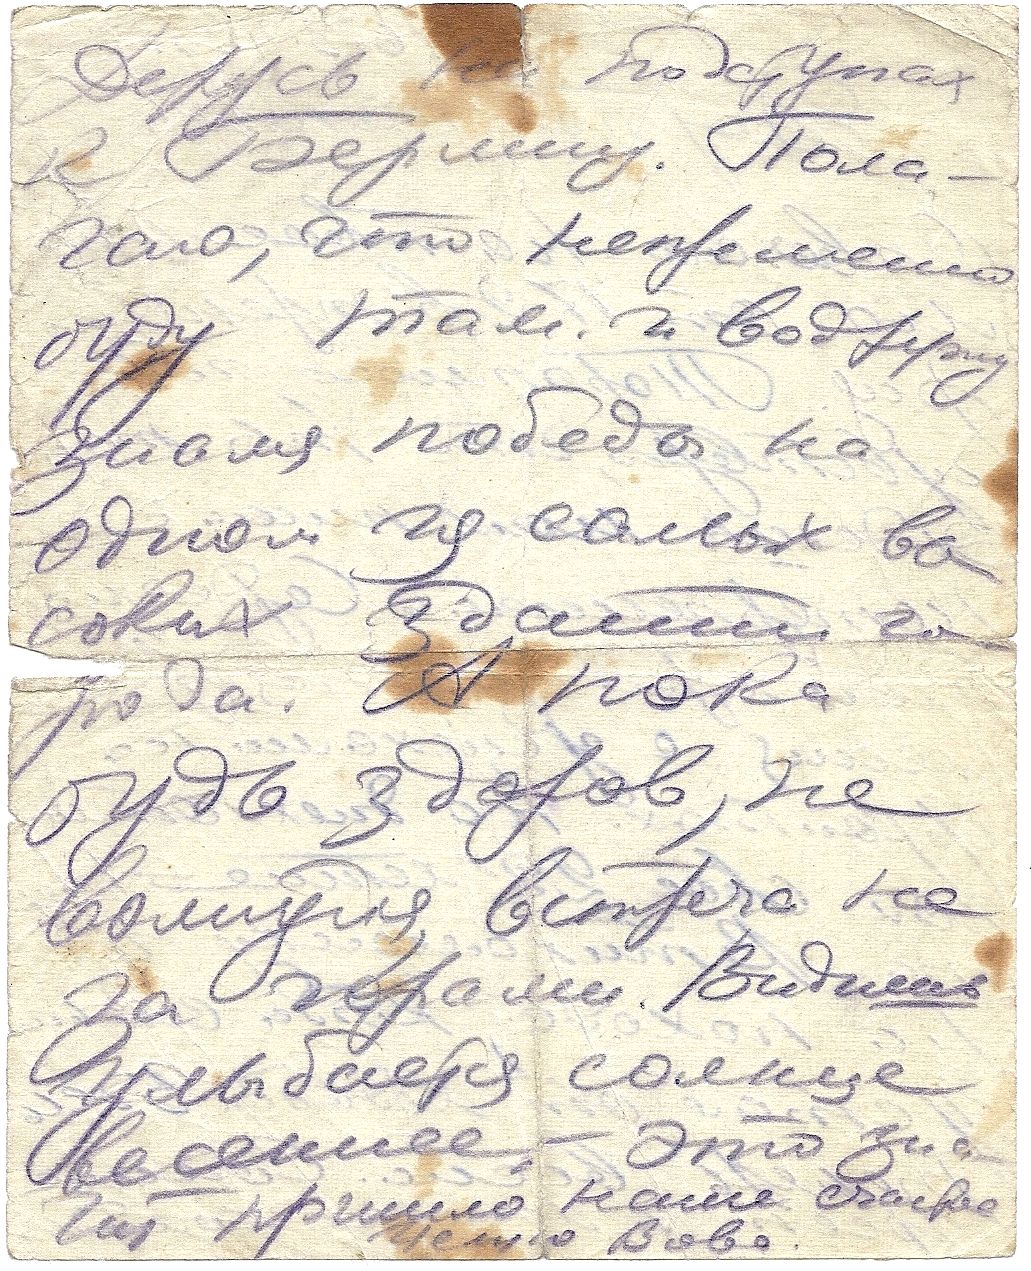 Дерусь на подступах
к Берлину. Пола-
гаю, что непременно
буду там. и водружу
знамя победы на
одном из самых вы
соких зданий го
рода. А пока
будь здоров, не
волнуйся, встреча не
за горами. Видишь
улыбается солнце
весеннее, – это зна
чит пришло наше счастье
Целую Вова.